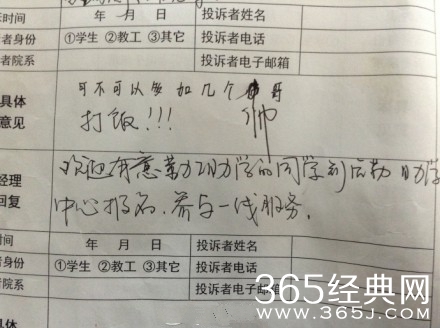 时间 年 月 日 投诉者姓名
者身份 ①学生 ②教工 ③其它 投诉者电话
者院系 投诉者电子邮箱
具体
意见
可不可以多加几个帅哥
打饭!!!
经理
回复
欢迎有意勤工助学的同学到后勤助学
中心报名,参与一线服务。
时间 年 月 日 投诉者姓名
者身份 ①学生 ②教工 ③其它 投诉者电话
者院系 投诉者电子邮箱
365经典网
www.365j.com